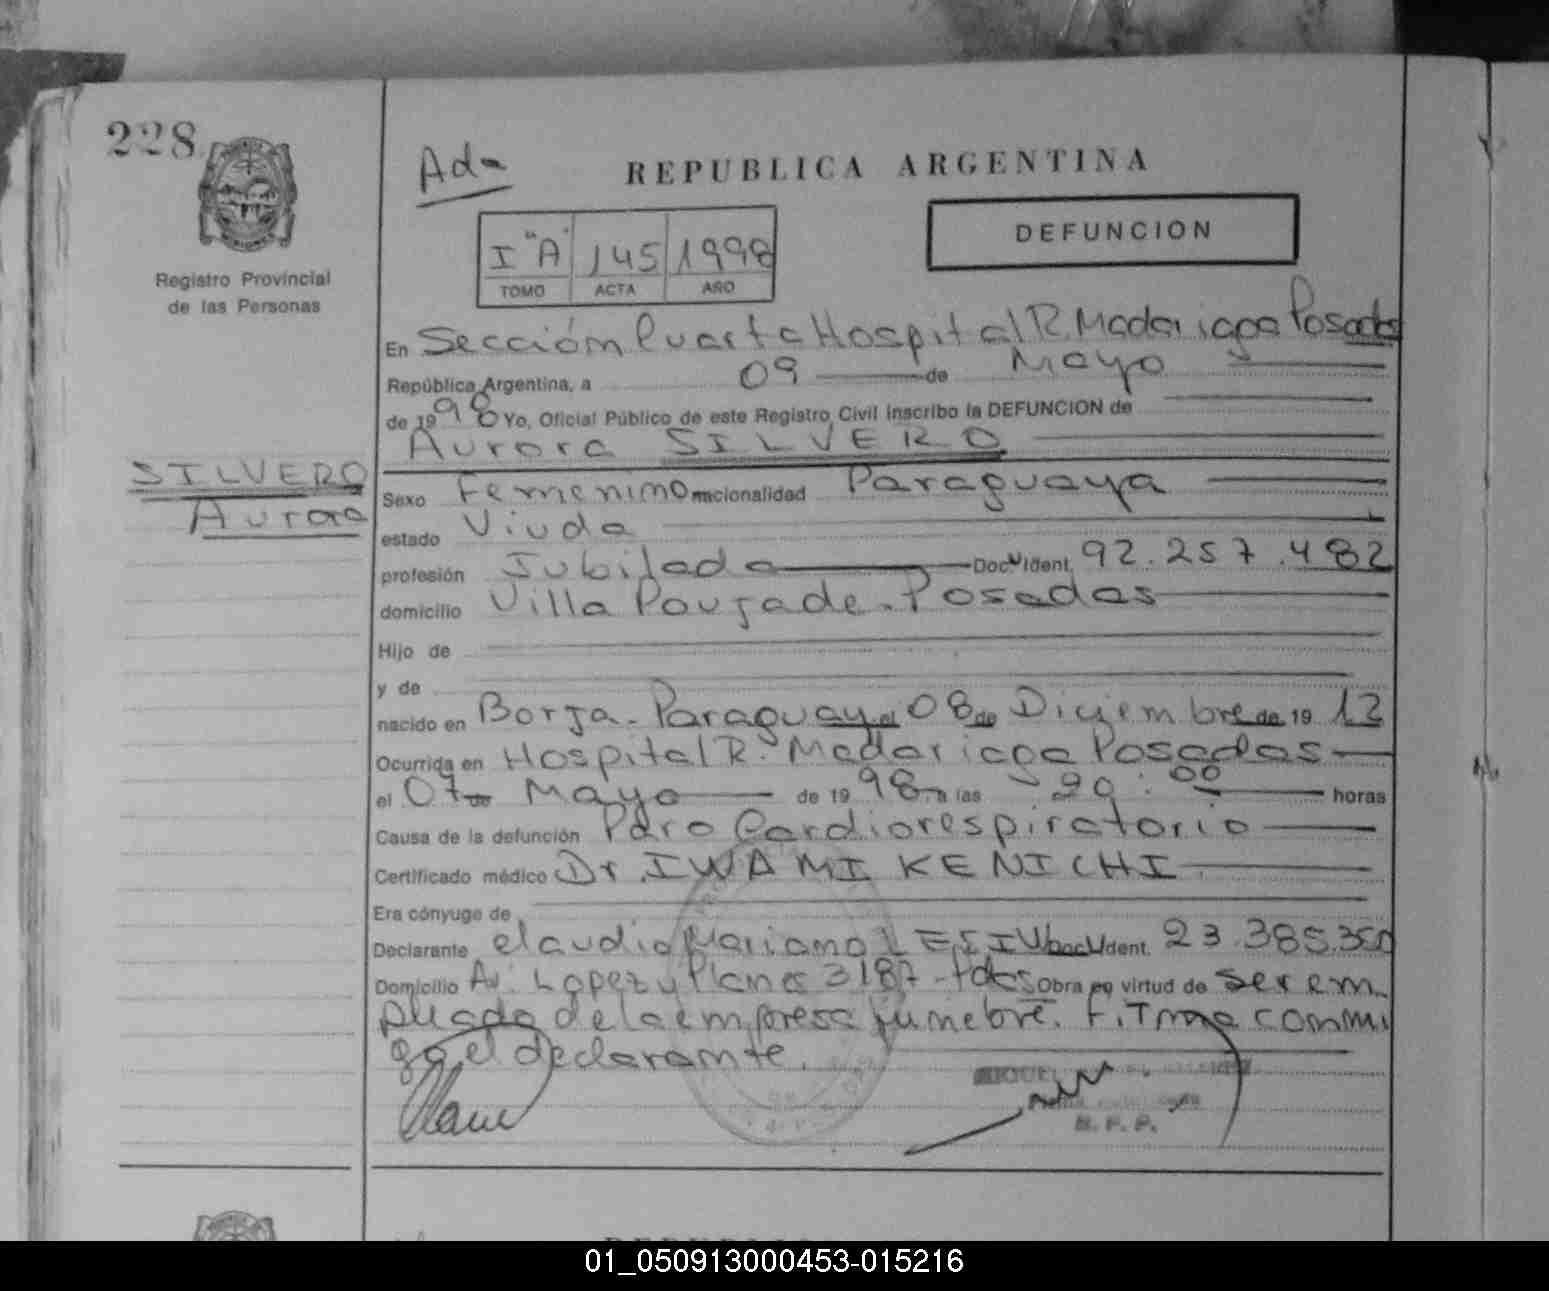 228
Ada
REPUBLICA ARGENTINA
Registro Provincial
de las Personas
I "A" 145 1998
TOMO ACTA AÑO
DEFUNCION
En Sección Cuarta Hospital R. Madariaga Posadas
República Argentina, a 09 de Mayo
de 1998 Yo, Oficial Público de este Registro Civil inscribo la DEFUNCION de
Aurora SILVERO
SILVERO
Aurora
Sexo Femenino nacionalidad Paraguaya
estado Viuda
profesión Jubilada Doc. Ident. 92.257.482
domicilio Villa Poujade - Posadas
Hijo de
y de
nacido en Borja - Paraguay el 08 de Diciembre de 1912
Ocurrida en Hospital R. Madariaga Posadas
el 07 de Mayo de 1998 a las 20:00 horas
Causa de la defunción Paro Cardiorespiratorio
Certificado médico Dr. IWAMI KENICHI
Era cónyuge de
Declarante Claudio Mariano Doc. Ident. 23.385.350
Domicilio Av. Lopez y Planes 3187 - Pdas Obra en virtud de ser em
pleado de la empresa fúnebre. Firma conmi
go el declarante.
R. P. P.
01_050913000453-015216